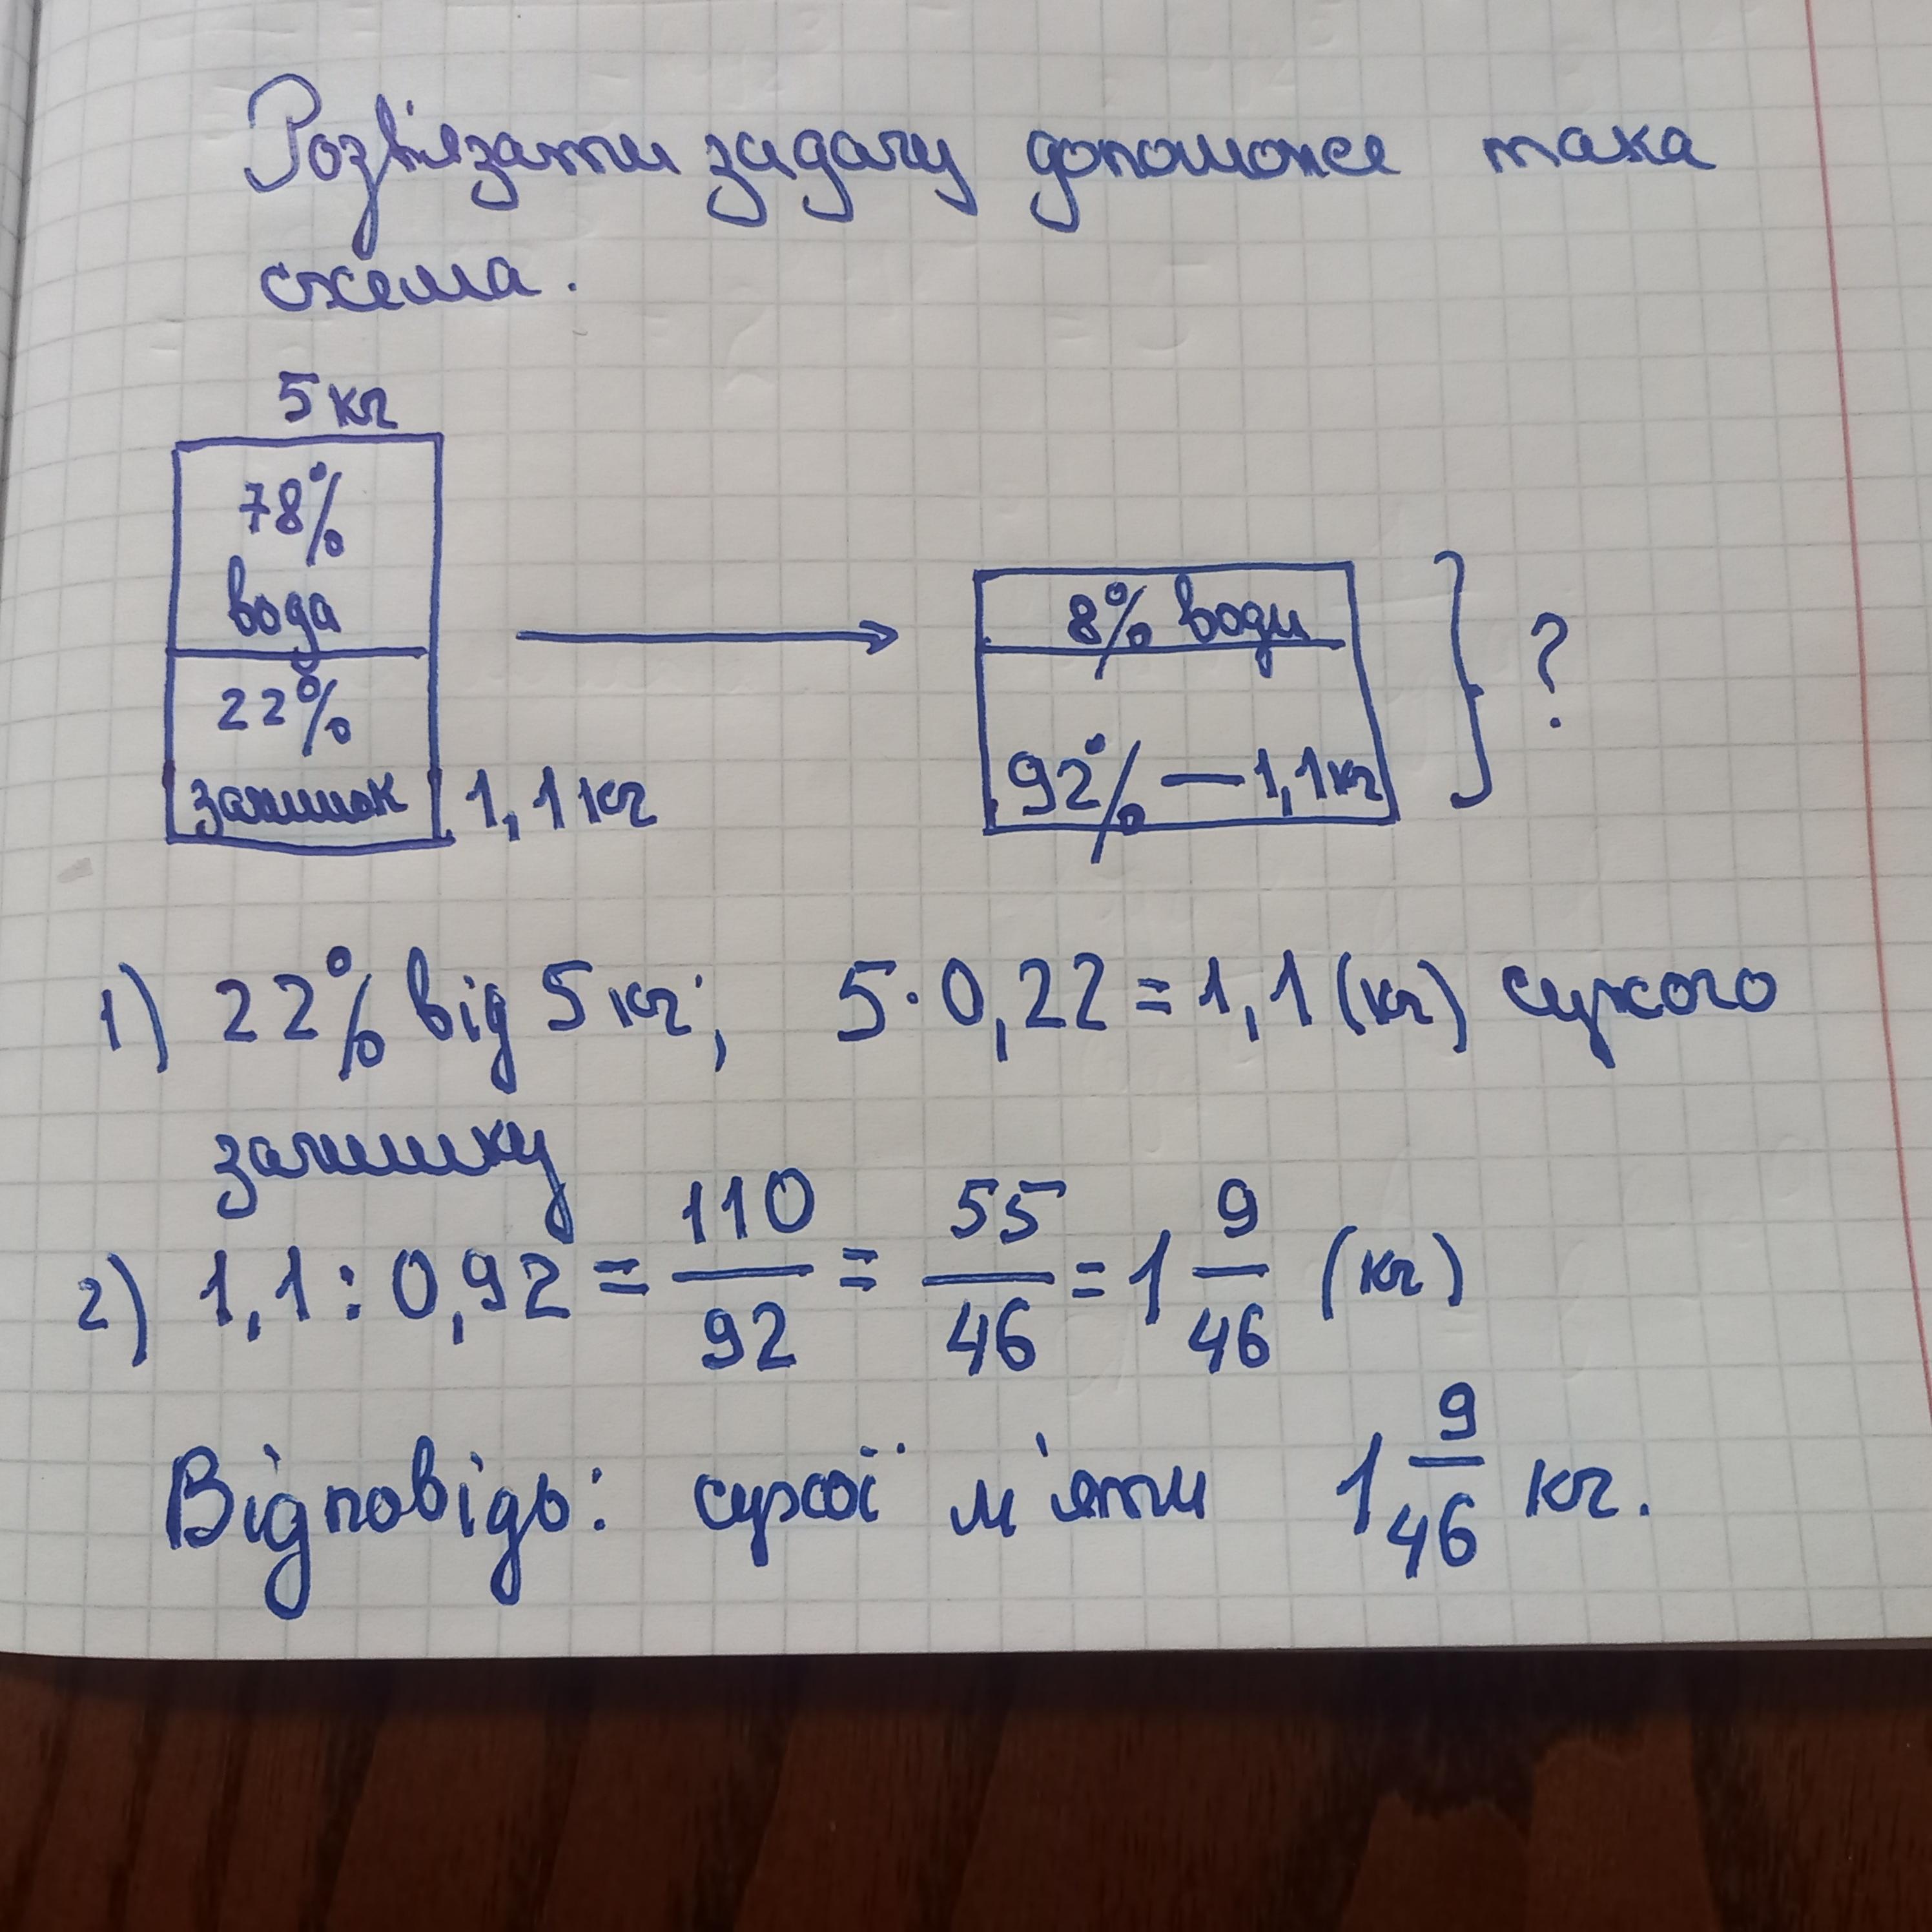 Розв'язати задачу допоможе така
схема.
5 кг
78%
вода
22%
залишок
1,1 кг
8% води
92% — 1,1 кг
?
1) 22% від 5 кг; 5·0,22 = 1,1 (кг) сухого
залишку
2) 1,1 : 0,92 = 110/92 = 55/46 = 1 9/46 (кг)
Відповідь: сухої м'яти 1 9/46 кг.